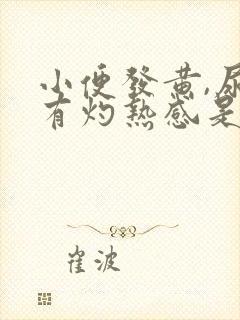 小便發黃,尿
有灼熱感是
崔波